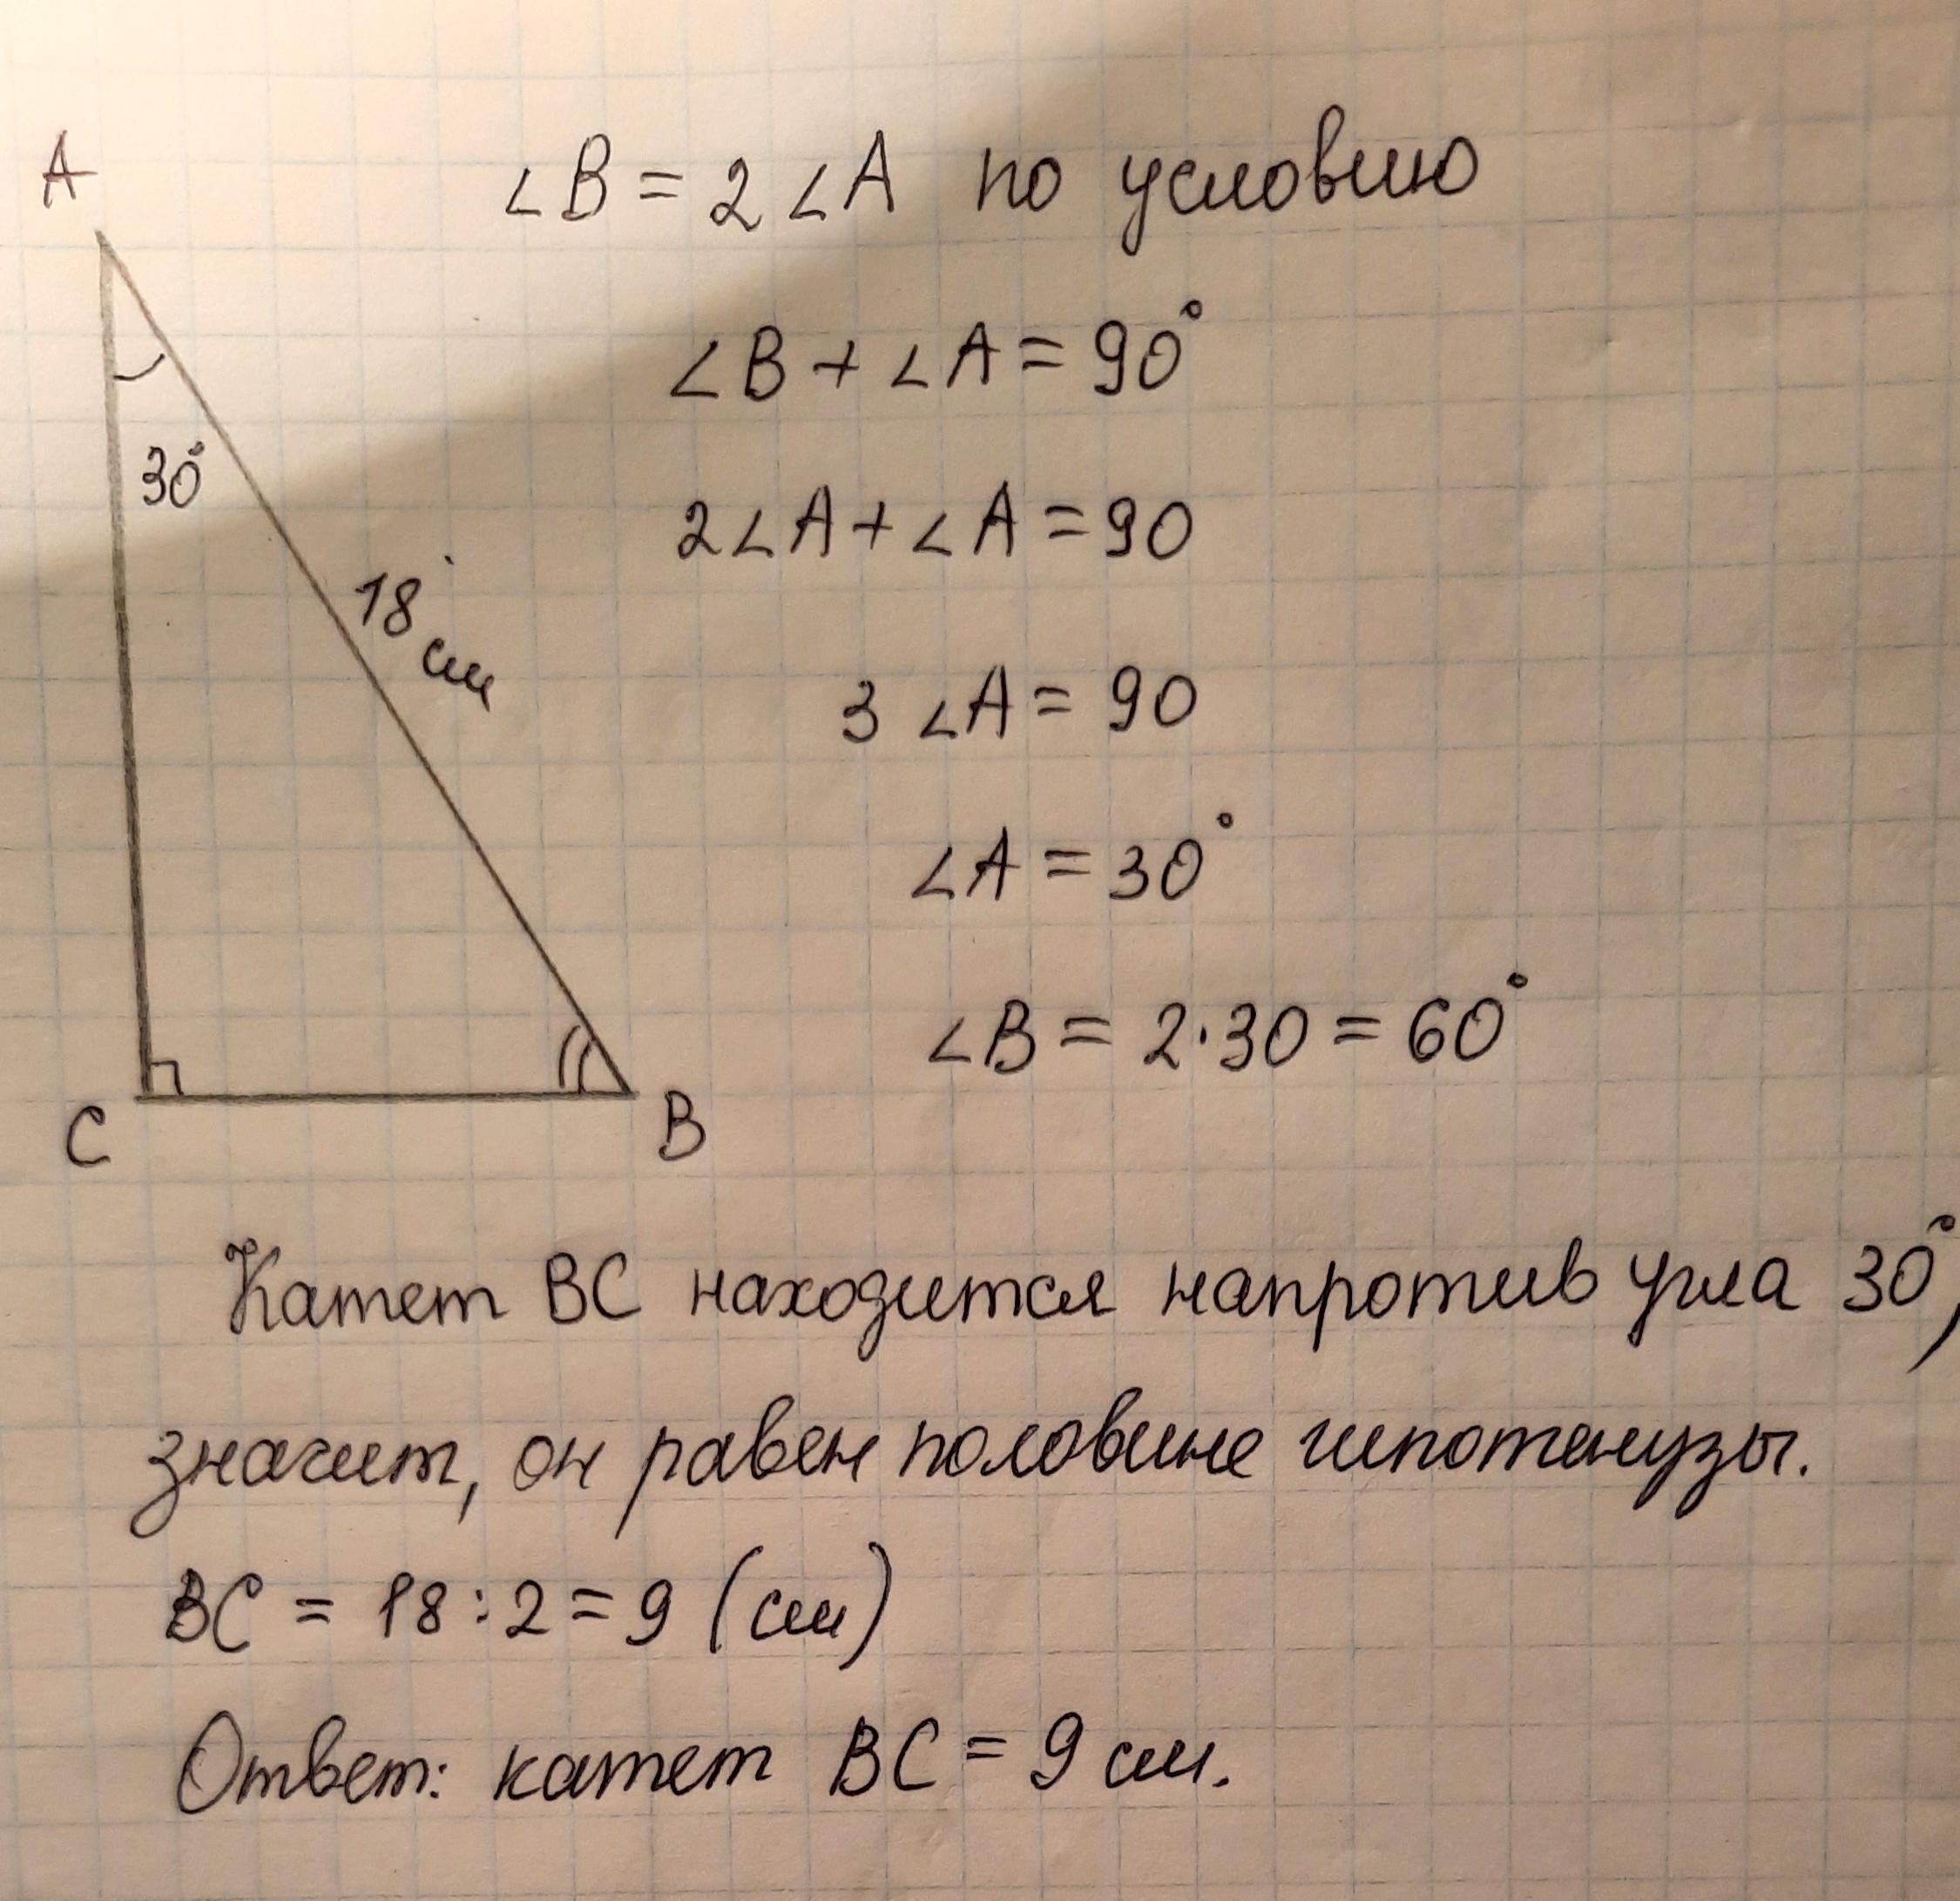 A
∠B = 2∠A по условию
∠B + ∠A = 90°
30°
2∠A + ∠A = 90
18 см
3 ∠A = 90
∠A = 30°
∠B = 2·30 = 60°
C
B
Катет BC находится напротив угла 30°,
значит, он равен половине гипотенузы.
BC = 18 : 2 = 9 (см)
Ответ: катет BC = 9 см.